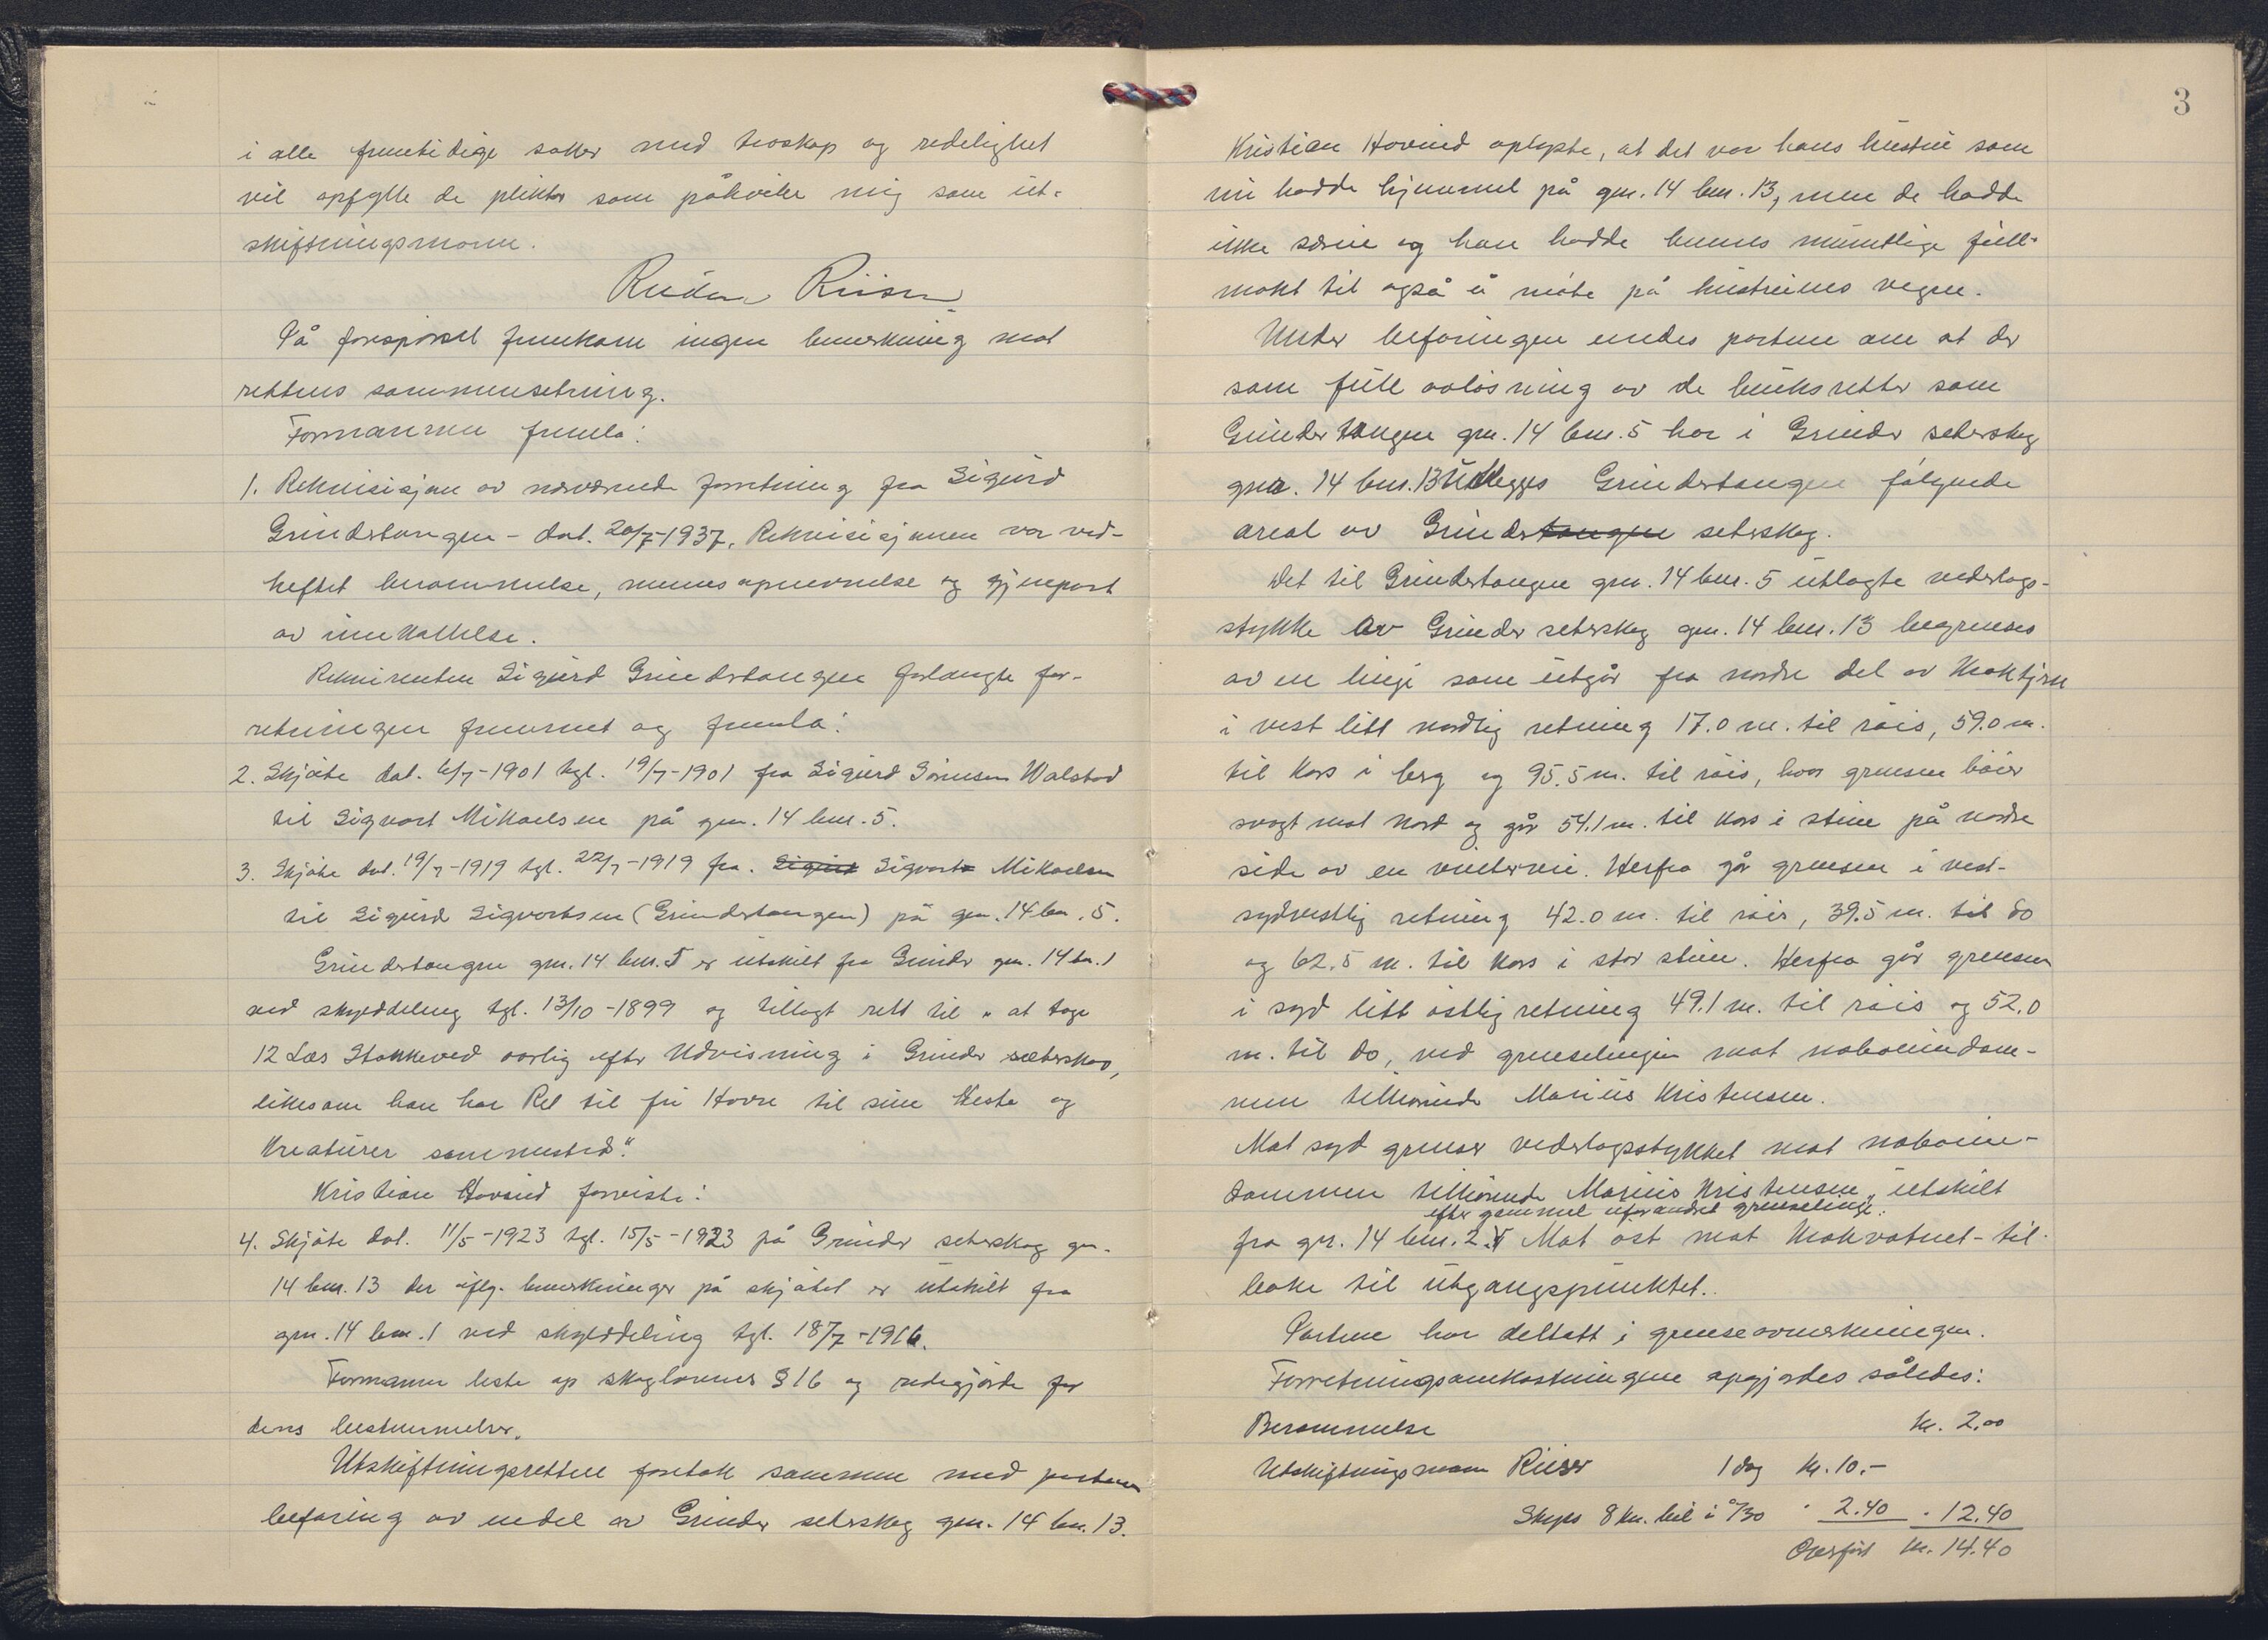 i alle fremtidige saker med troskap og redelighet
vil opfylle de plikter som påhviler mig som ut-
skiftningsmann.
På forespørsel fremkom ingen bemerkning mot
rettens sammensetning.
Formannen fremla:
1. Rekvisisjon av nærværende forretning fra Sigurd
Grinderstangen - dat. 20/7-1937. Rekvisisjonen var ved-
heftet berammelse, mannsopnevnelse og gjenpart
av innkallelse.
Rekvirenten Sigurd Grinderstangen forlangte for-
retningen fremmet og fremla:
2. Skjøte dat. 6/7-1901 tgl. 19/7-1901 fra Sigurd Simensen Walstad
til Sigvart Mikaelsen på gnr. 14 bnr. 5.
3. Skjøte dat. 19/7-1919 tgl. 22/7-1919 fra. Sigurd Sigvart Mikaelsen
til Sigurd Sigvartsen (Grinderstangen) på gnr. 14 bnr. 5.
Grinderstangen gnr. 14 bnr. 5 er utskilt fra Grinder gnr. 14 bnr. 1
ved skylddeling tgl. 13/10-1899 og tillagt rett til "at tage
12 Læs Stokkeved aarlig efter Udvisning i Grinder sæterskov,
likesom han har Ret til fri Havn til sine Heste og
Kreaturer sammested."
Kristian Hovind foreviste:
4. Skjøte dat. 11/5-1923 tgl. 15/5-1923 på Grinder seterskog gnr.
14 bnr. 13 der iflg. bemerkninger på skjøtet er utskilt fra
gnr. 14 bnr. 1 ved skylddeling tgl. 18/7-1916.
Formannen leste op skoglovens § 16 og redegjorde for
dens bestemmelser.
Utskiftningsretten foretok sammen med partene
befaring av endel av Grinder seterskog gnr. 14 bnr. 13.
3
Kristian Hovind oplyste, at det var hans hustru som
nu hadde hjemmel på gnr. 14 bnr. 13, men de hadde
ikke særeie og han hadde hennes muntlige full-
makt til også å møte på hustruens vegne.
Under befaringen enedes partene om at der
som full avløsning av de bruksretter som
Grinderstangen gnr. 14 bnr. 5 har i Grinder seterskog
gnr. 14 bnr. 13 utlegges Grinderstangen følgende
areal av Grinderstangen seterskog.
Det til Grinderstangen gnr. 14 bnr. 5 utlagte vederlags-
stykke av Grinder seterskog gnr. 14 bnr. 13 begrenses
av en linje som utgår fra nordre del av Moktjern
i vest litt nordlig retning 17.0 m. til røis, 59.0 m.
til kors i berg og 95.5 m. til røis, hvor grensen bøier
svagt mot nord og går 54.1 m. til kors i stein på nordre
side av en vintervei. Herfra går grensen i vest-
sydvestlig retning 42.0 m. til røis, 39.5 m. til do
og 62.5 m. til kors i stor stein. Herfra går grensen
i syd litt østlig retning 49.1 m. til røis og 52.0
m. til do, ved grenselinjen mot naboeiendom-
men tilhørende Marius Kristensen.
Mot syd grenser vederlagsstykket mot naboeien-
dommen tilhørende Marius Kristensen, utskilt
efter gammel uforandret grenselinje.
fra gnr. 14 bnr. 2. Mot øst mot Mokvatnet - til-
bake til utgangspunktet.
Partene har deltatt i grenseavmerkningen.
Forretningsomkostningene opgjordes således:
Berammelse kr. 2.00
Utskiftningsmann Riiser 1 dag kr. 10.-
Skyss 8 km. bil i 0/30 " 2.40 " 12.40
Overført kr. 14.40